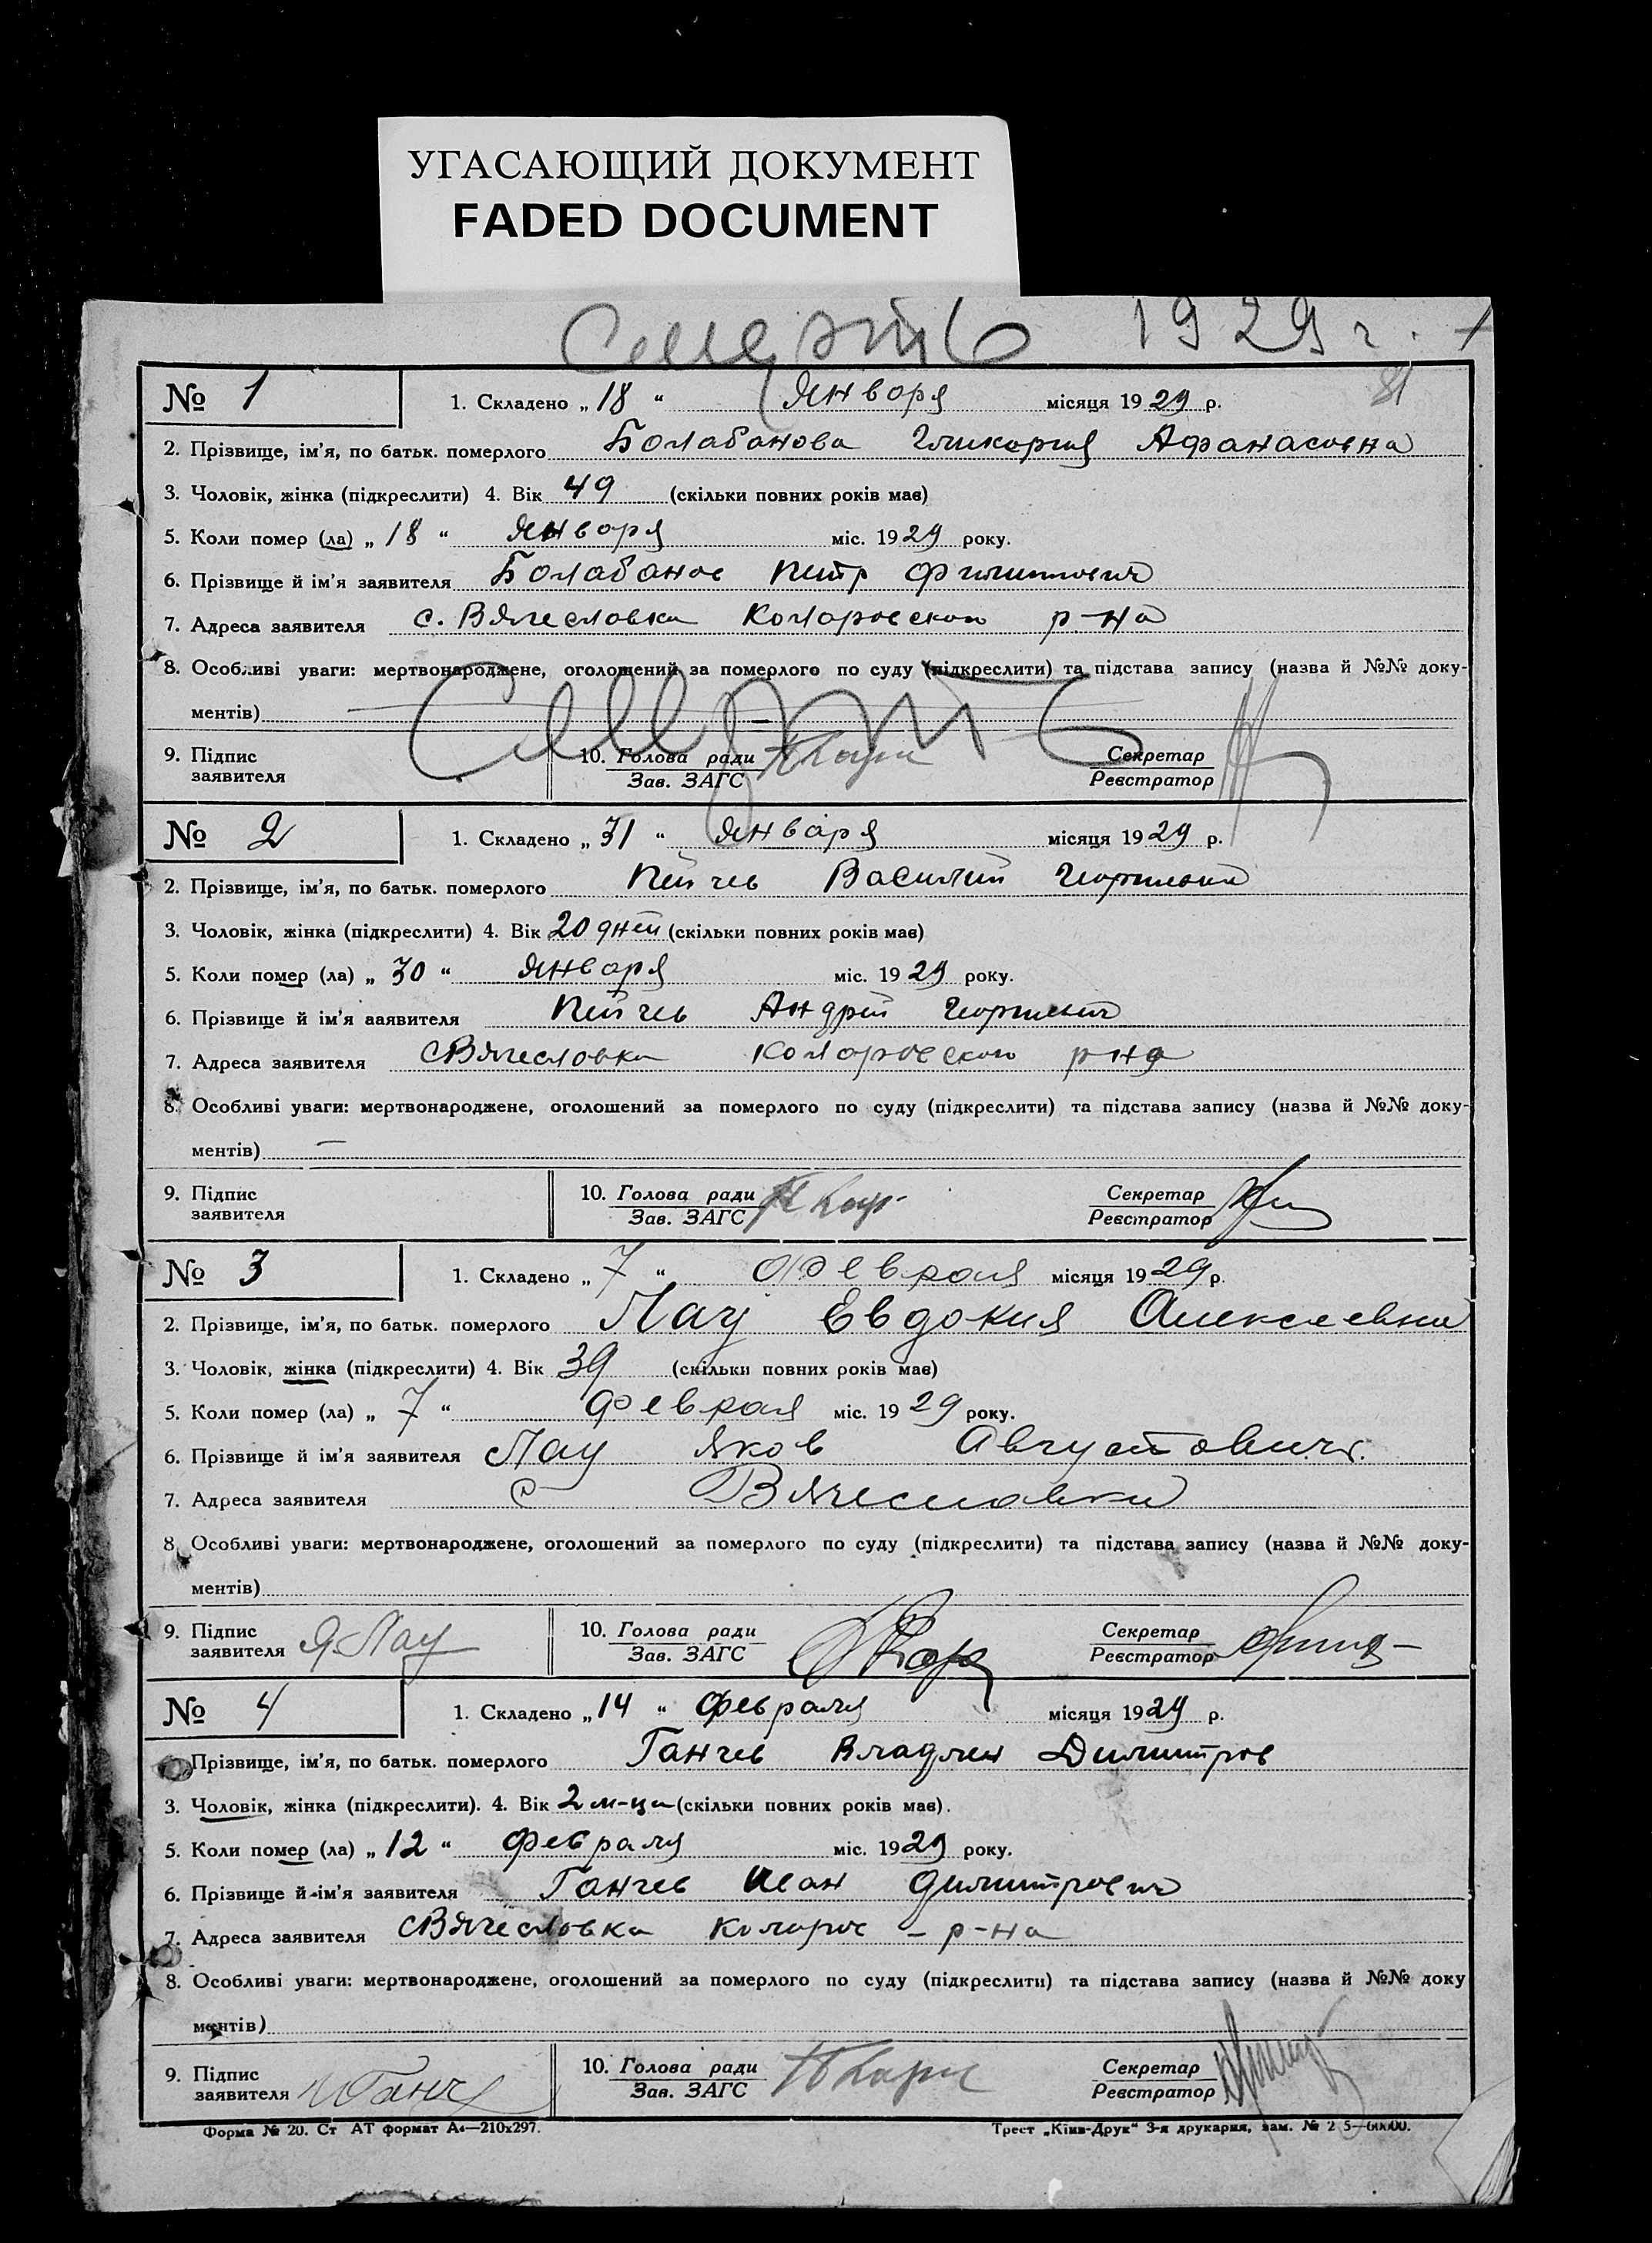 УГАСАЮЩИЙ ДОКУМЕНТ
FADED DOCUMENT
Смерть 1929 г.
81
№ 1 1. Складено „ 18 “ Января місяця 19 29 р.
2. Прізвище, ім’я, по батьк. померлого Болабанова Гликерия Афанасовна
3. Чоловік, жінка (підкреслити) 4. Вік 49 (скільки повних років має)
5. Коли помер (ла) „ 18 “ Января міс. 19 29 року.
6. Прізвище й ім’я заявителя Болабанов Петр Филиппович
7. Адреса заявителя с. Вячесловка Коларовского р-на
8. Особливі уваги: мертвонароджене, оголошений за померлого по суду (підкреслити) та підстава запису (назва й №№ доку-
ментів) —
Смерть
9. Підпис заявителя 10. Голова ради Зав. ЗАГС Секретар Реєстратор
№ 2 1. Складено „ 31 “ Января місяця 19 29 р.
2. Прізвище, ім’я, по батьк. померлого Пейчев Василий Георгиевич
3. Чоловік, жінка (підкреслити) 4. Вік 20 дней (скільки повних років має)
5. Коли помер (ла) „ 30 “ Января міс. 19 29 року.
6. Прізвище й ім’я ааявителя Пейчев Андрей Георгиевич
7. Адреса заявителя с Вячесловка Коларовского р на
8. Особливі уваги: мертвонароджене, оголошений за померлого по суду (підкреслити) та підстава запису (назва й №№ доку-
ментів) —
9. Підпис заявителя 10. Голова ради Зав. ЗАГС Секретар Реєстратор
№ 3 1. Складено „ 7 “ Февраля місяця 19 29 р.
2. Прізвище, ім’я, по батьк. померлого Лау Евдокия Алексеевна
3. Чоловік, жінка (підкреслити) 4. Вік 39 (скільки повних років має)
5. Коли помер (ла) „ 7 “ Февраля міс. 19 29 року.
6. Прізвище й ім’я заявителя Лау Яков Августович.
7. Адреса заявителя с Вячесловка
8. Особливі уваги: мертвонароджене, оголошений за померлого по суду (підкреслити) та підстава запису (назва й №№ доку-
ментів)
9. Підпис заявителя Я. Лау 10. Голова ради Зав. ЗАГС Секретар Реєстратор
№ 4 1. Складено „ 14 “ Февраля місяця 19 29 р.
Прізвище, ім’я, по батьк. померлого Ганчев Владлен Димитров
3. Чоловік, жінка (підкреслити). 4. Вік 2 м-ца (скільки повних років має).
5. Коли помер (ла) „ 12 “ Февраля міс. 19 29 року.
6. Прізвище й ім’я заявителя Ганчев Иван Димитрович
7. Адреса заявителя с Вячесловка Коларов – р-на
8. Особливі уваги: мертвонароджене, оголошений за померлого по суду (підкреслити) та підстава запису (назва й №№ доку
ментів)
9. Підпис заявителя И Ганч 10. Голова ради Зав. ЗАГС Секретар Реєстратор
Форма № 20. Ст АТ формат А₄—210х297. Трест „Київ-Друк“ 3-я друкарня, зам. № 2 5—60000.